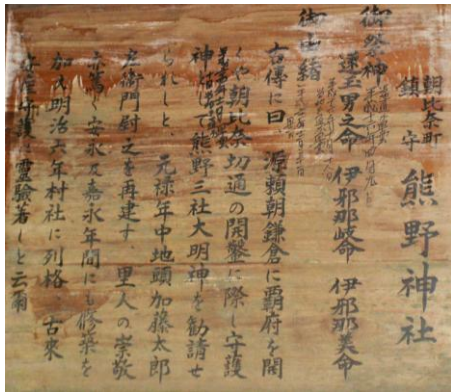 朝比奈町
鎮守
熊野神社
御祭神
速玉男之命 伊邪那岐命 伊邪那美命
御由緒
古傳に曰、源頼朝鎌倉に覇府を開
くや朝比奈切通の開鑿に際し守護
神熊野三社大明神を勧請せ
られしと、元禄年中地頭加藤太郎
左衛門尉之を再建す、里人の崇敬
篤く安永及嘉永年間にも修築を
加へ明治六年村社に列格、古来
守護に霊験著しと云爾